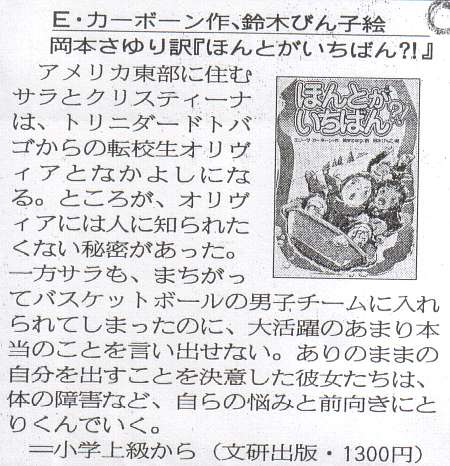 E・カーボーン作、鈴木びん子絵
岡本さゆり訳『ほんとがいちばん?!』
アメリカ東部に住む
サラとクリスティーナ
は、トリニダードトバ
ゴからの転校生オリヴ
ィアとなかよしにな
る。ところが、オリヴ
ィアには人に知られた
くない秘密があった。
一方サラも、まちがっ
てバスケットボールの男子チームに入れ
られてしまったのに、大活躍のあまり本
当のことを言い出せない。ありのままの
自分を出すことを決意した彼女たちは、
体の障害など、自らの悩みと前向きにと
りくんでいく。
=小学上級から(文研出版・1300円)
ほんとが
いちばん?!